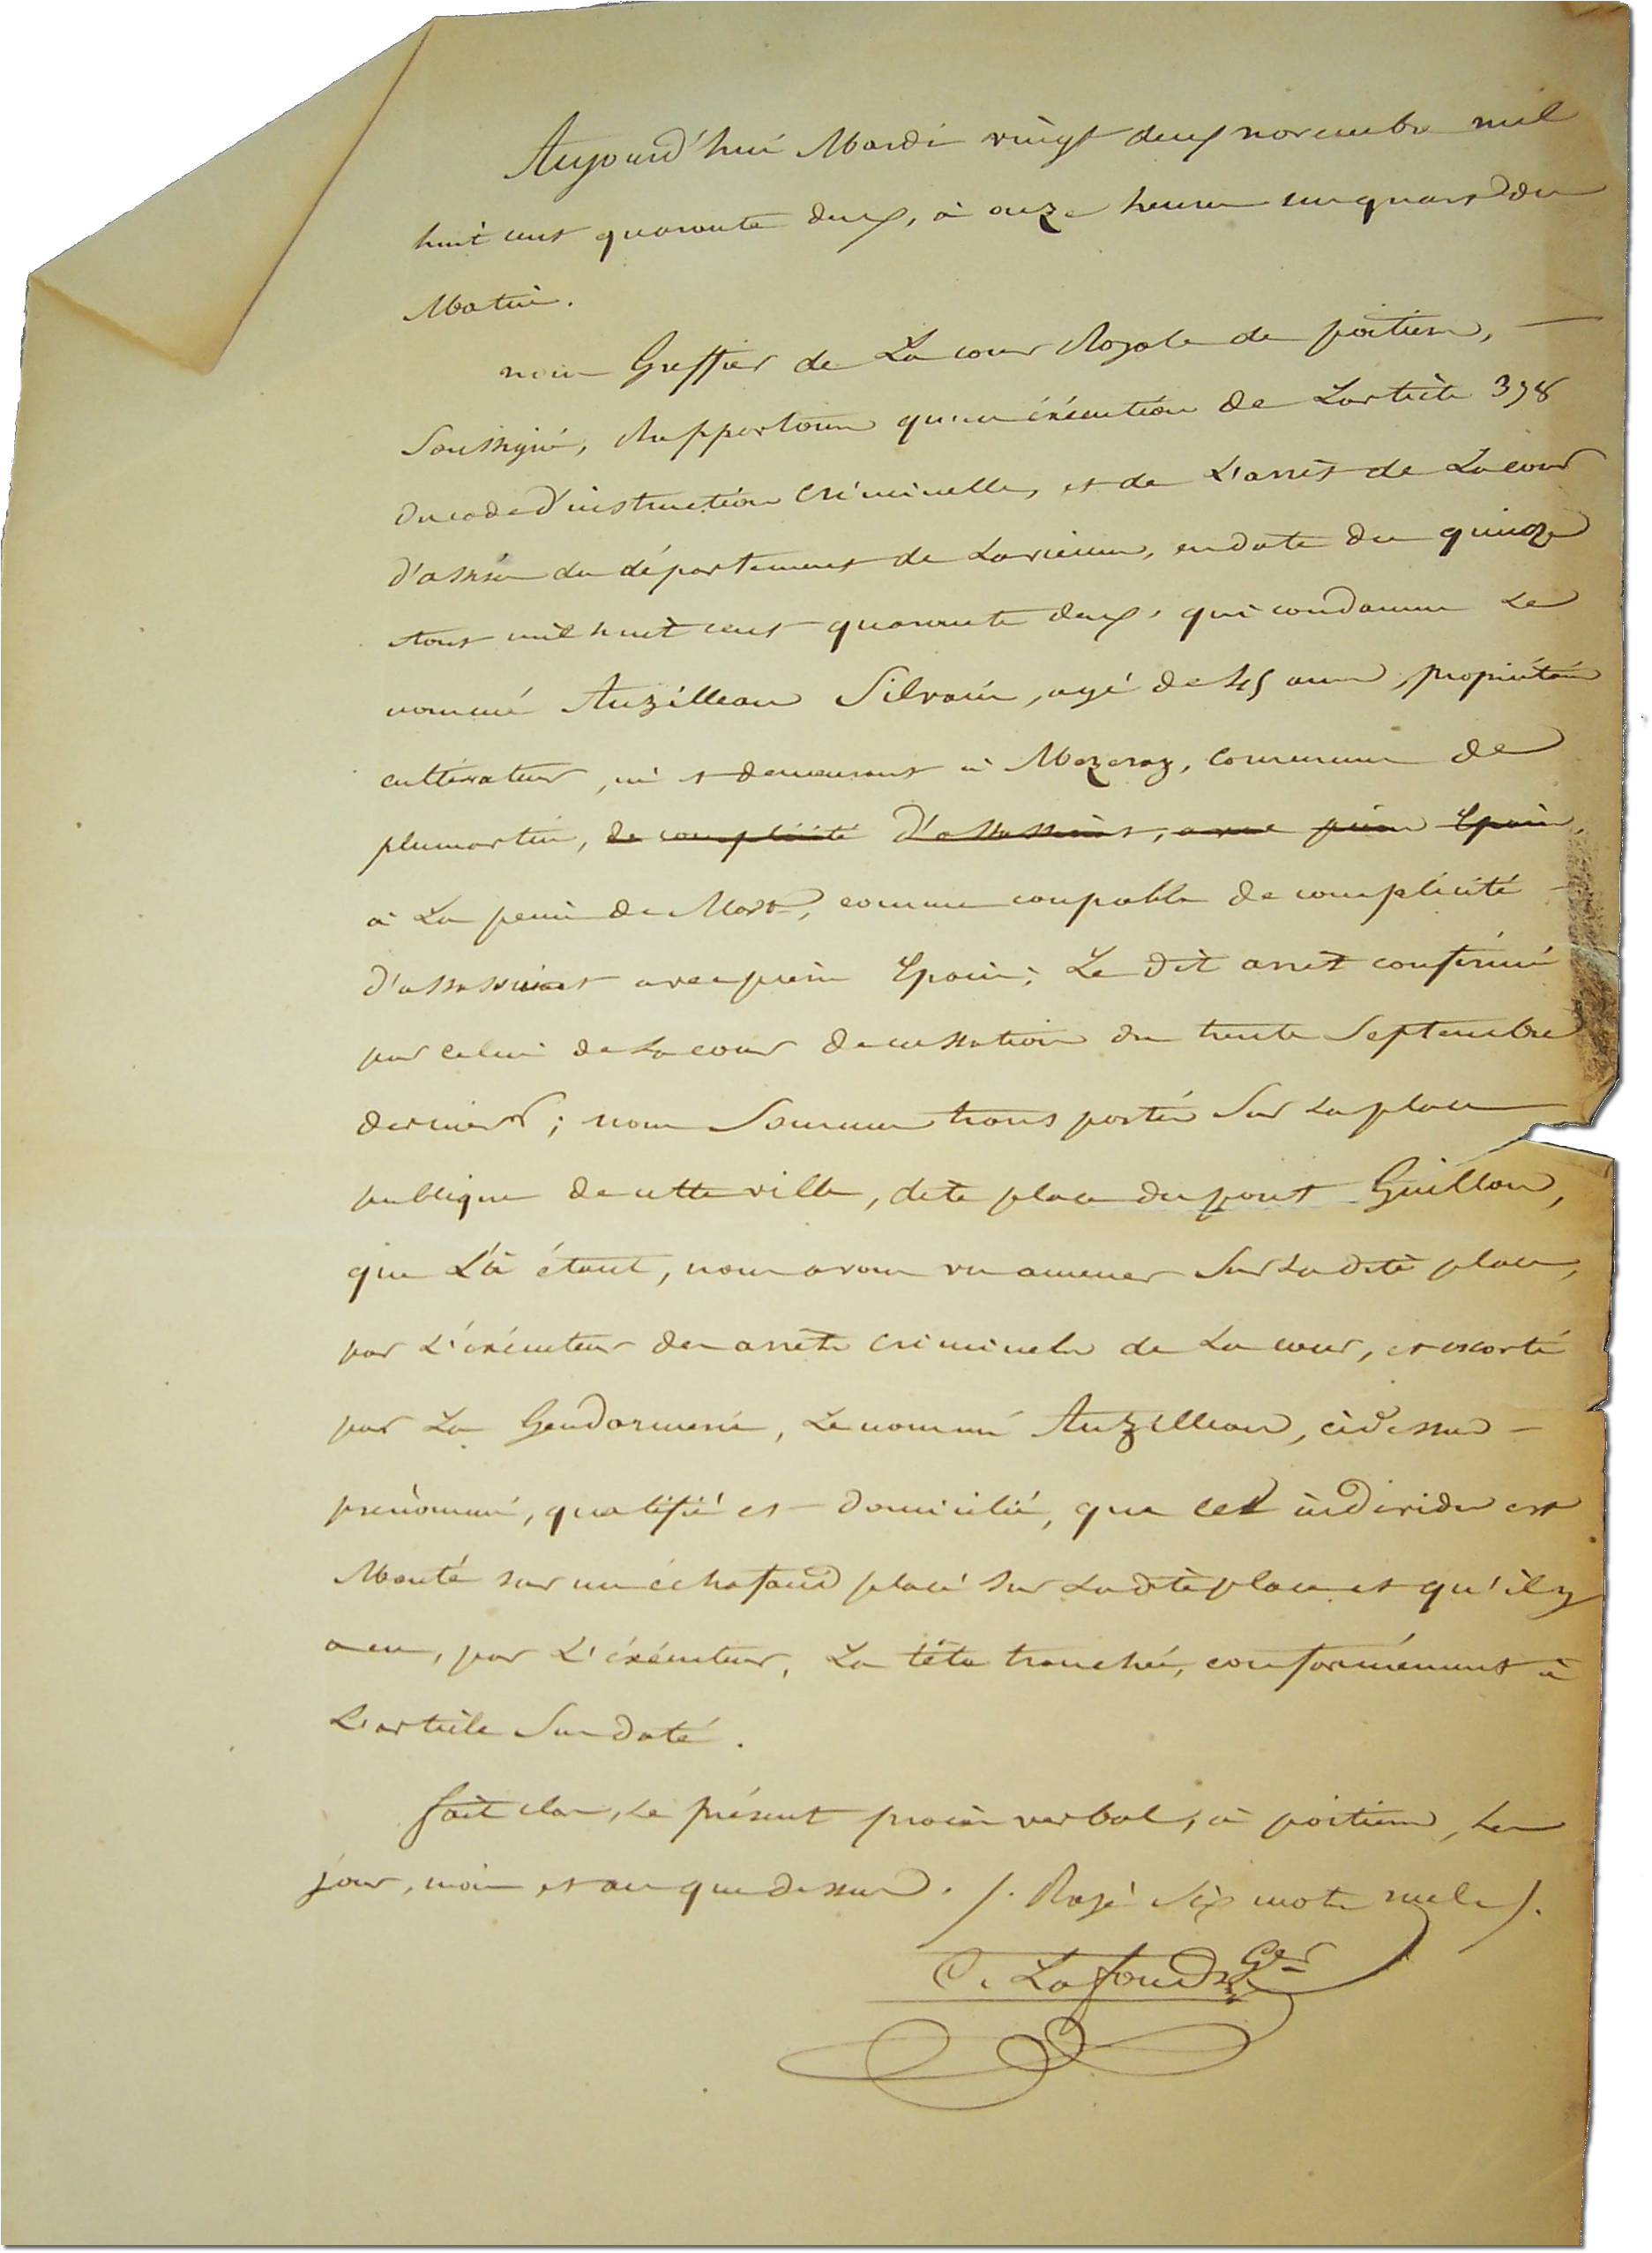 Aujourd'hui Mardi vingt deux novembre mil
huit cent quarante deux, à onze heures un quart du
Matin.
nous Greffier de La cour Royale de poitiers, —
Soussigné, Rapportons qu'en éxécution de L'article 378
du code d'instruction criminelle, et de L'arrêt de La cour
d'assises du département de La vienne, en date du quinze
Aout mil huit cent quarante deux, qui condamne Le
nommé Auzilleau Silvain, agé de 45 ans, propriétaire
cultivateur, né et demeurant à Mazeray, commune de
plumartin, de complicité d'assassinat, avec pierre Epain,
à La peine de Mort, comme coupable de complicité —
d'assassinat avec pierre Epain; Le dit arrêt confirmé
par celui de La cour de cassation du trente Septembre
dernier; nous Sommes transportés Sur La place
publique de cette ville, dite place du pont Guillon,
que Là étant, nous avons vu amener Sur La dite place,
par L'éxécuteur des arrêts criminels de La cour, et escorté
par La Gendarmerie, Le nommé Auzilleau, ci dessus —
prénommé, qualifié et domicilié, que cet individu est
Monté sur un échafaud placé Sur La dite place et qu'il y
a eu, par L'éxécuteur, La tête tranchée, conformément à
L'article Sus daté.
fait clos, Le présent procès verbal, à poitiers, Les
jour, mois et an que dessus. /. Rayé Six mots nuls /.
C. Lafond Ger